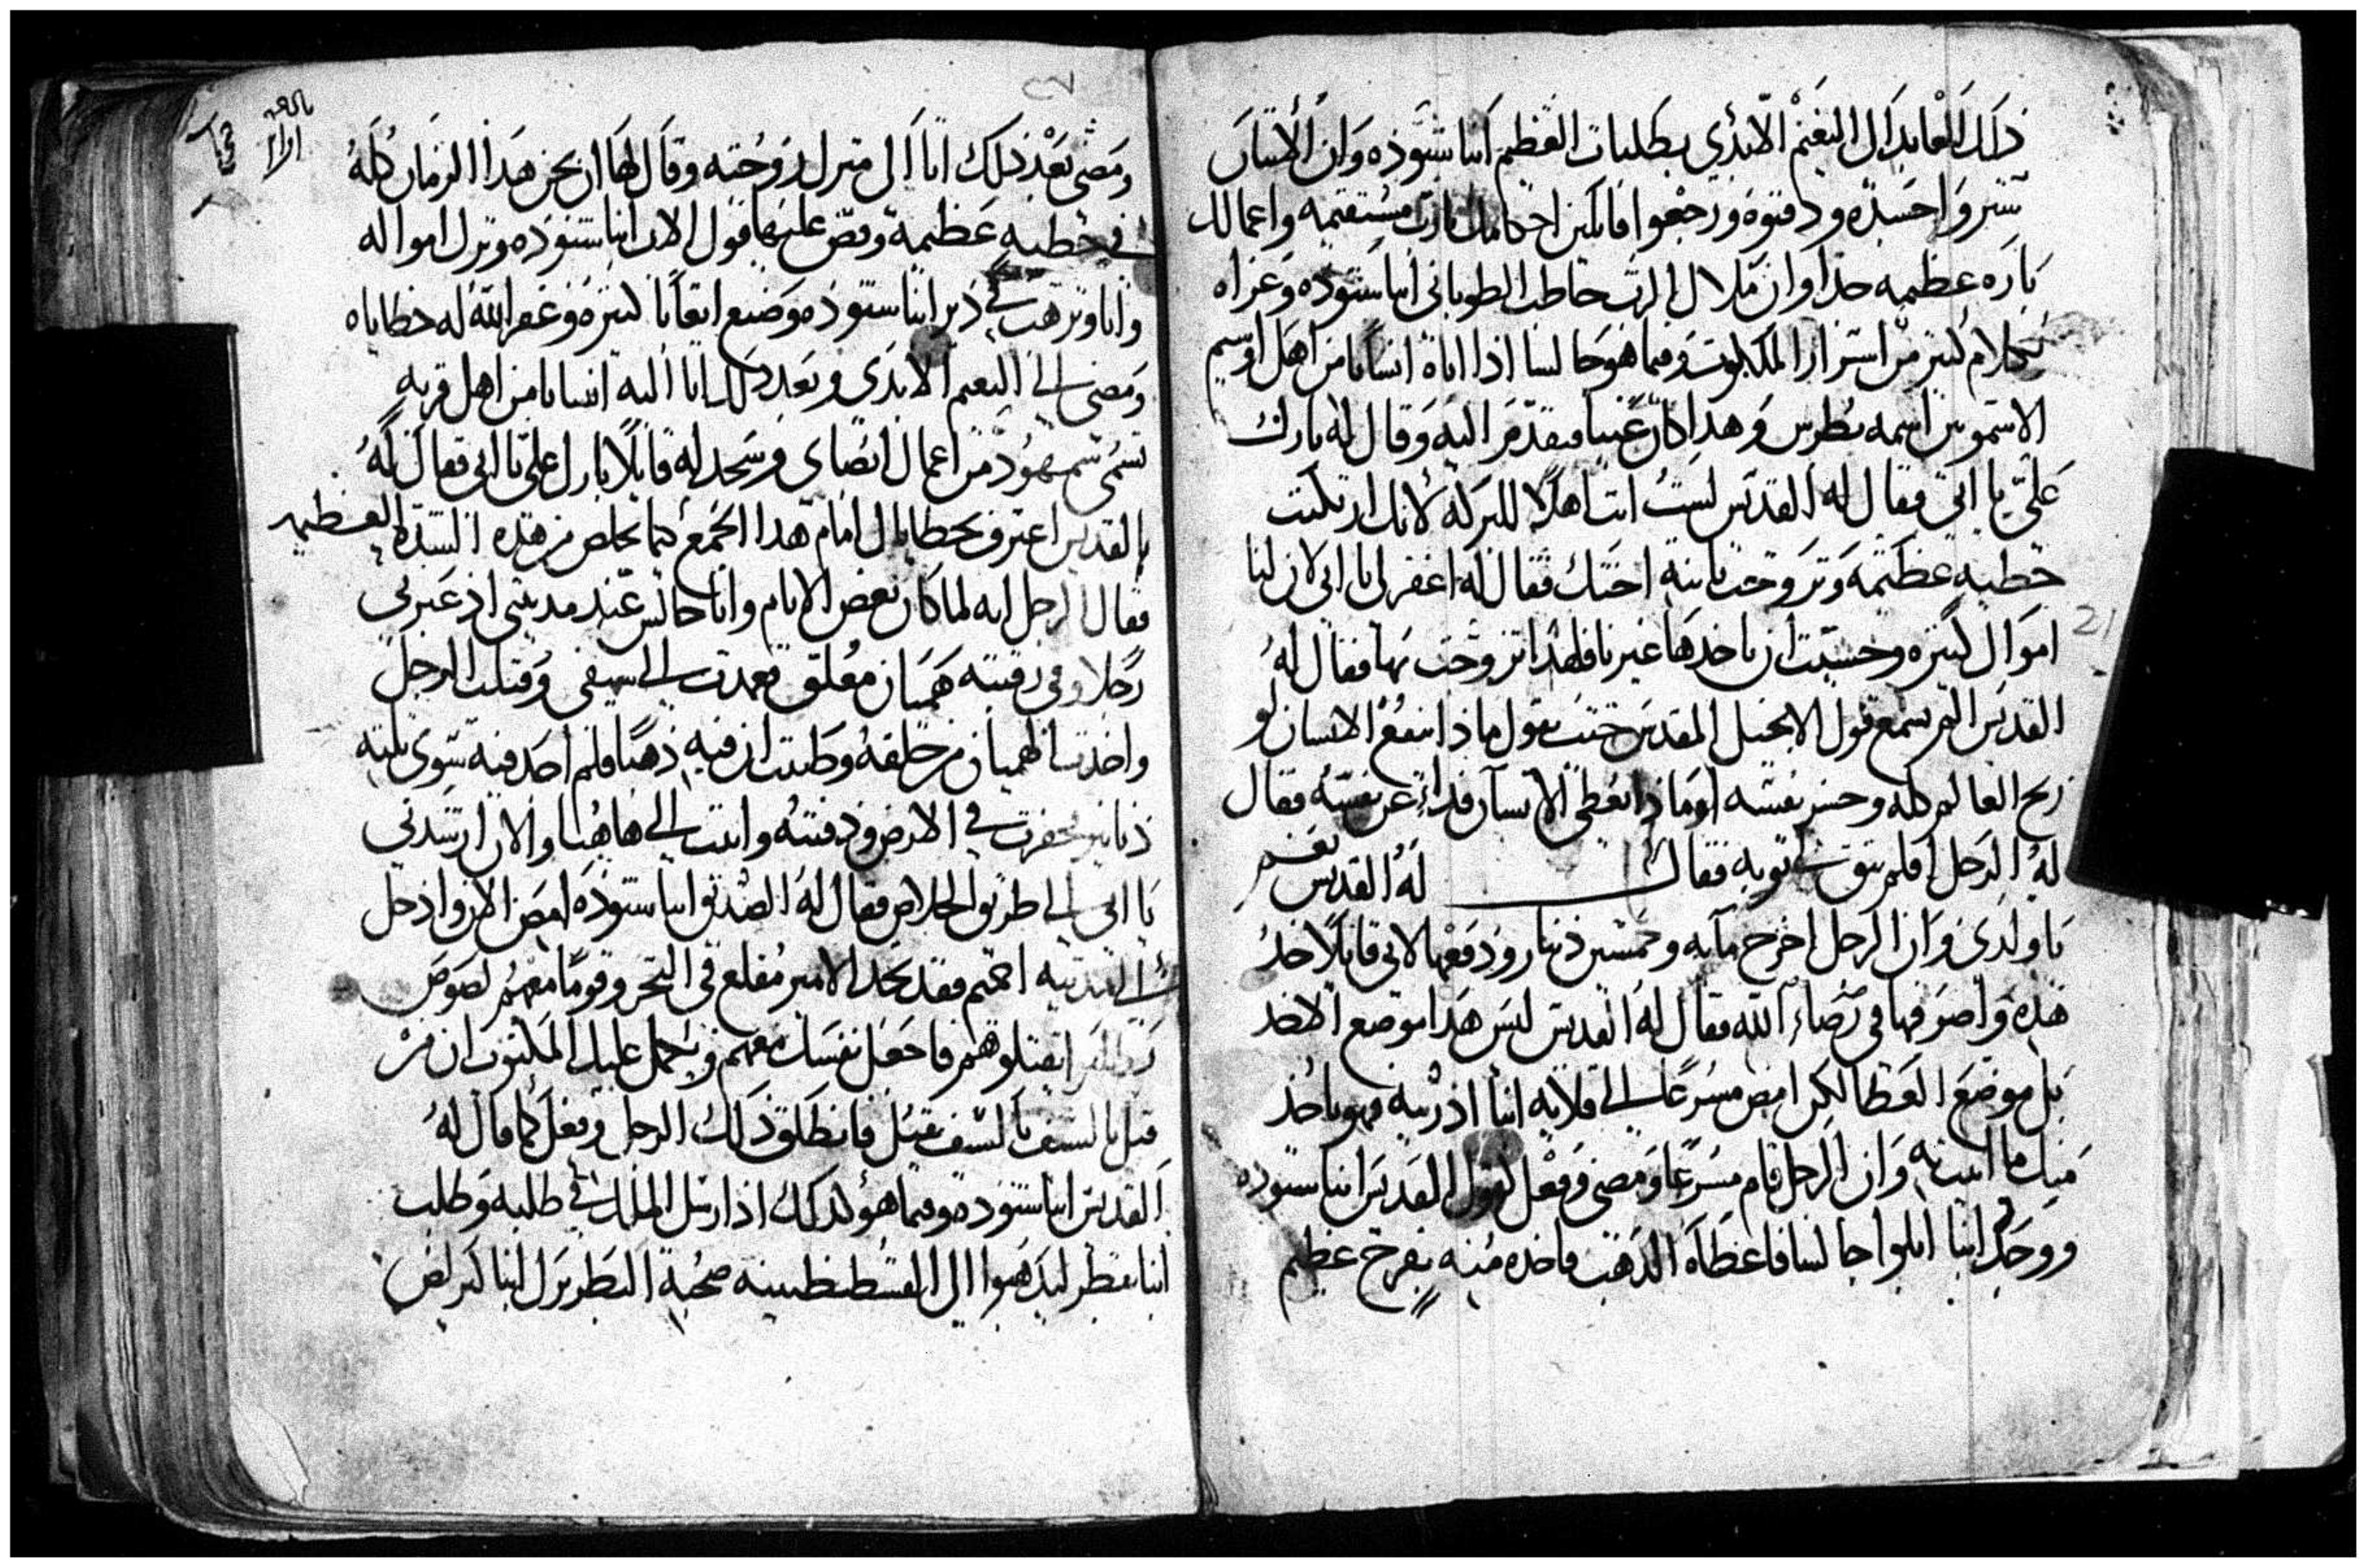 ذلك العابد الى النعيم الابدي بطلبات العظيم انبا شنوده وان الاخوان
ستروا جسده ودفنوه ورجعوا قايلين احكامك يارب مستقيمه واعمالك
باره عظيمه جدا وان ملاك الرب خاطب الطوباني انبا شنوده وعزاه
بكلام كثير من اسرار الملكوت وفيما هو جالسا اذا اتاه انسانا من اهل اوسيم
الاشمونين اسمه بطرس وهدا كان غنيا فتقدم اليه وقال له بارك
علي يا ابي فقال له القديس لست انت اهلا للبركه لانك ارتكبت
خطيه عظيمه وتزوجت بابنة اختك فقال له اغفر لي يا ابي لان لنا
اموال كثيره وحسبت ان ياخدها غيرنا فلهدا تزوجت بها فقال له
القديس الم تسمع قول الانجيل المقدس حيث يقول ماذا ينفع الانسان لو
ربح العالم كله وخسر نفسه او ماذا يعطي الانسان فداء عن نفسه فقال
له الرجل افلم يبق لي توبه فقال له القديس نعم
يا ولدي وان الرجل اخرج مايه وخمسين دينار ودفعها لابي قايلا خد
هده واصرفها في رضاء الله فقال له القديس ليس هدا موضع الاخد
بل موضع العطا لكن امض مسرعا الى قلاية انبا اندريه فهو ياخد
منك ما اتيت به وان الرجل قام مسرعا ومضى وفعل كقول القديس انبا شنوده
ووجد انبا ابلوا جالسا فاعطاه الدهب فاخده منه بفرح عظيم
ومضى بعد ذلك اتا الى منزل زوجته وقال لها ان نحن هدا الزمان كله
في خطيه عظيمة وقص عليها قول الاب انبا شنوده وترك امواله
واتا وترهب في دير انبا شنوده وصنع اتعابا كثيره وغفر الله له خطاياه
ومضى الى النعيم الابدي وبعد دلك اتا اليه انسانا من اهل قريه
تسمى سمهود من اعمال ابصاي وسجد له قايلا بارك علي يا ابي فقال له
القديس اعترف بخطاياك امام هدا الجمع كما تخلص من هده الشدة العظيمه
فقال الرجل انه لما كان بعض الايام وانا جالس عند مدينتي اذ عبر بي
رجلا وفي رقبته هميان معلق فعمدت الى سيفي وقتلت الرجل
واخدت الهميان من خلفه وظننت ان فيه ذهبا فلم اجد فيه سوى ثلثه
دنانير فحفرت في الارض ودفنته واتيت الى هاهنا والان ارشدني
يا ابي الى طريق الخلاص فقال له الصديق انبا شنوده امض الان وادخل
الى المدينه اخميم فقد تجد الامير مقلع في البحر وقوما معهم لصوص
ليقتلوهم فاجعل نفسك معهم ويكمل عليك المكتوب ان من
قتل بالسيف بالسيف يقتل فانطلق ذلك الرجل وفعل كما قال له
القديس انبا شنوده وفيما هو كدلك اذ ارسل الملك في طلبه وطلب
انبا بقطر ليدهبوا الى القسطنطينية صحبة البطريرك انبا كيرلص